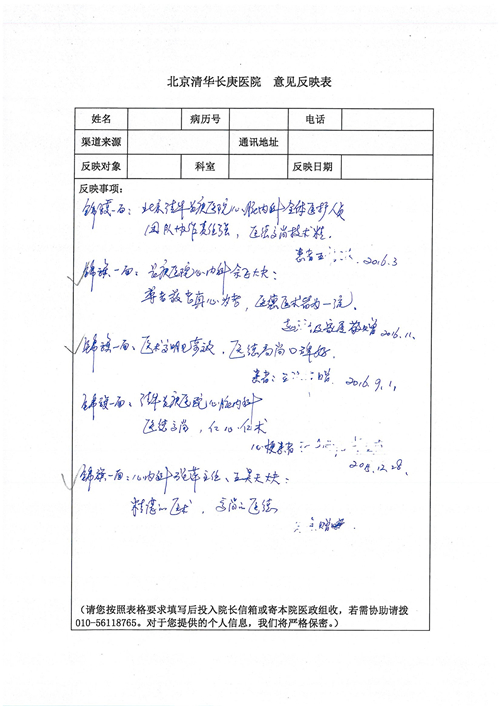 北京清华长庚医院 意见反映表
姓名 病历号 电话
渠道来源 通讯地址
反映对象 科室 反映日期
反映事项：
锦旗一面：北京清华长庚医院心脏内科全体医护人员
团队协作责任强，医德高尚技术精．
患者王 2016.3
锦旗一面：长庚医院心内科
医德医术
敬赠 2016.11.
锦旗一面：医术高明 医德高尚口碑好．
患者： 赠 2016.9.1，
锦旗一面：清华长庚医院心脏内科
医德高尚，仁心仁术
心梗患者
12.28.
锦旗一面：心内科 主任、 大夫：
精湛的医术，高尚的医德
赠
（请您按照表格要求填写后投入院长信箱或寄本院医政组收，若需协助请拨
010-56118765。对于您提供的个人信息，我们将严格保密。）